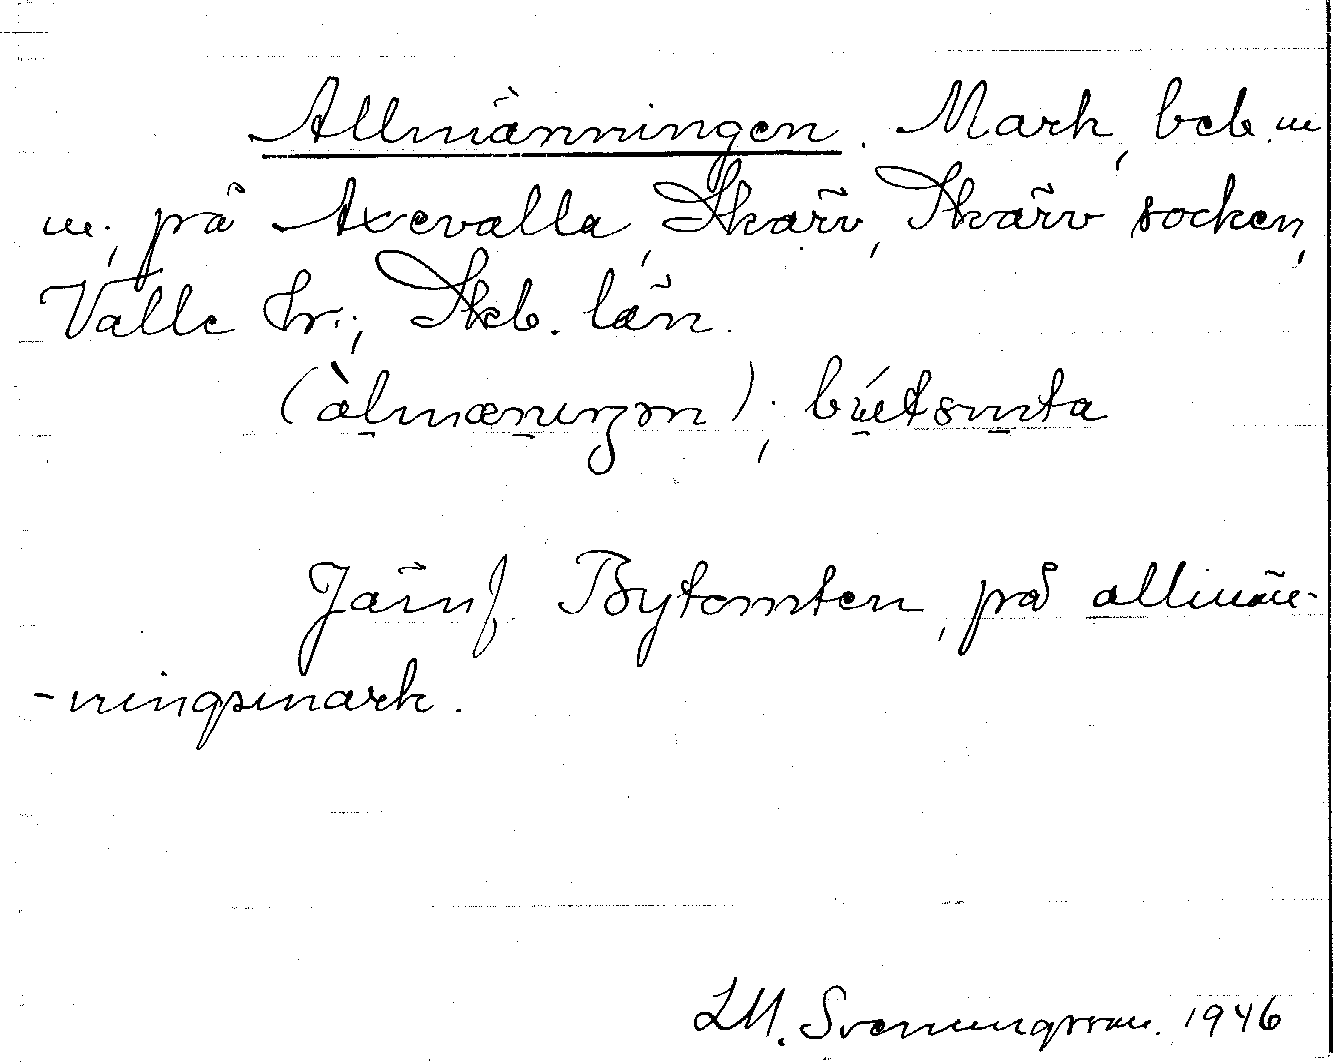 Allmänningen. Mark, beb. m
m., på Axevalla, Skärv, Skärv socken,
Valle hr., Skb. län.
(àlmæniŋən);
Jämf Bytomten, på allmän-
-ningsmark.
LM. Svenungsson. 1946